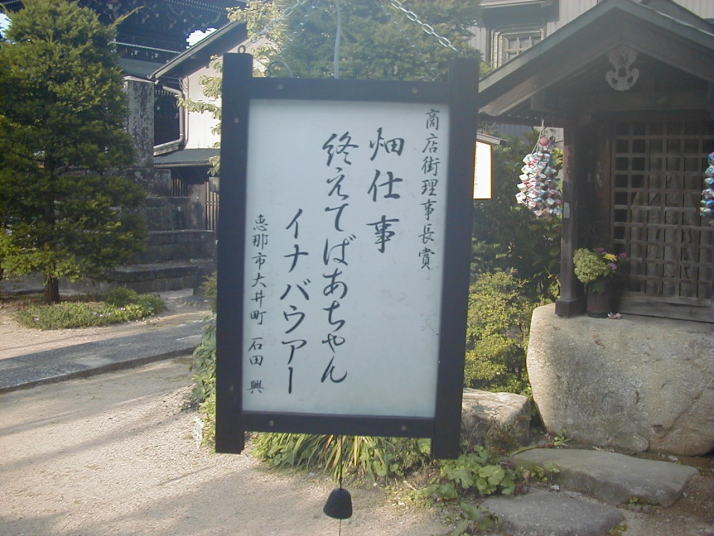 商店街理事長賞
畑仕事
終えてばあちゃん
イナバウアー
恵那市大井町 石田 興